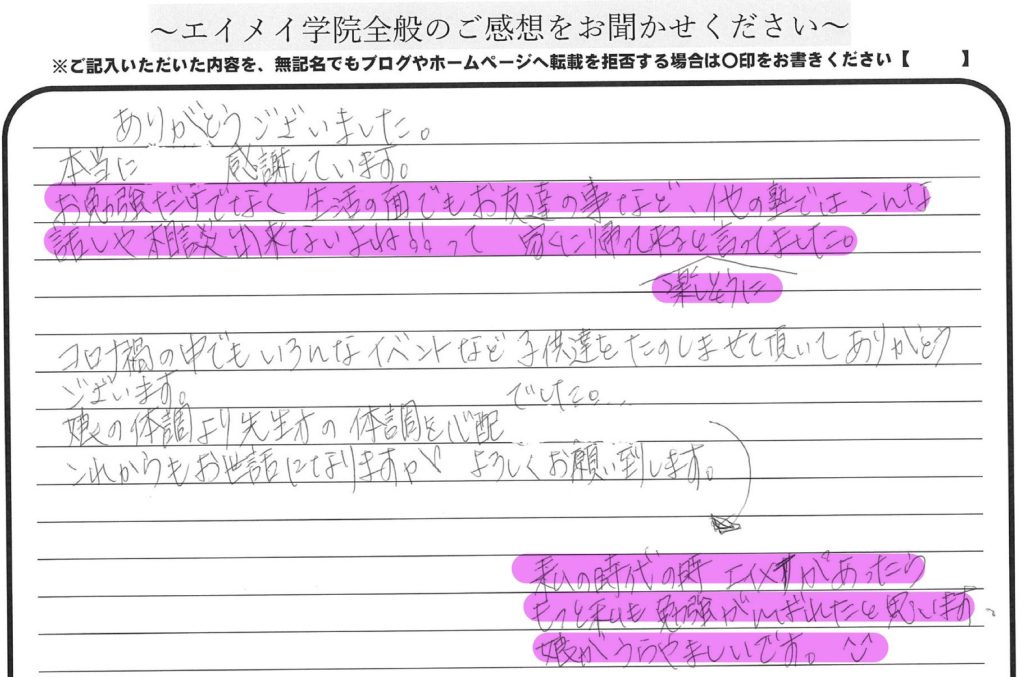 ～エイメイ学院全般のご感想をお聞かせください～
※ご記入いただいた内容を、無記名でもブログやホームページへ転載を拒否する場合は〇印をお書きください【　　】
ありがとうございました。
本当に　感謝しています。
お勉強だけでなく 生活の面でもお友達の事など、他の塾ではこんな
話しや相談出来ないよね!!って 家に帰って来ると言ってました。
楽しそうに
コロナ禍の中でもいろんなイベントなど子供達をたのしませて頂いてありがとう
ございます。
娘の体調より先生方の体調を心配 でした。…
これからもお世話になりますが よろしくお願い致します。
私の時代の時 エイメイがあったら
もっと私も勉強がんばれたと思います。
娘がうらやましいです。